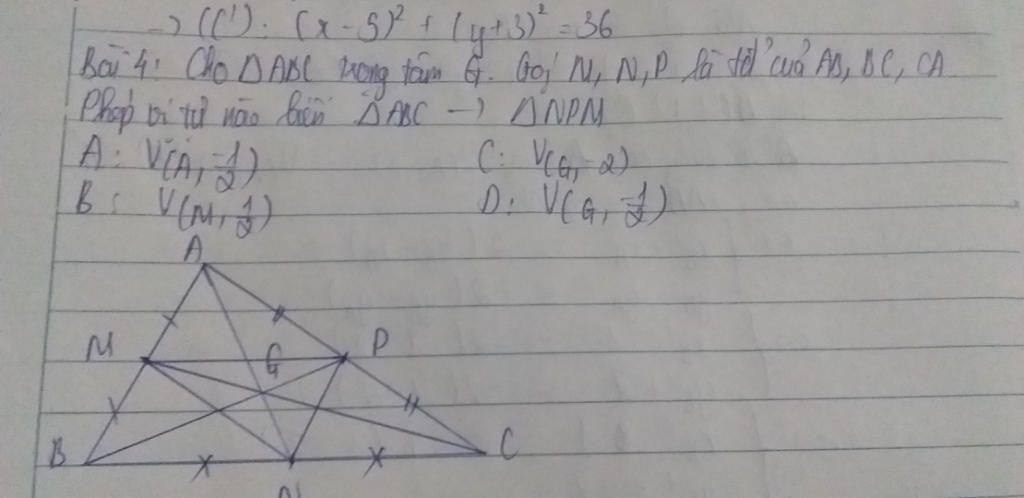 → (C'): (x - 5)² + (y + 3)² = 36
Bài 4: Cho ΔABC trọng tâm G. Gọi M, N, P là tđ của AB, BC, CA
Phép vị tự nào biến ΔABC → ΔNPM
A: V(A, -1/2) C: V(G, -2)
B: V(M, 1/2) D: V(G, -1/2)
A
M G P
B C
N